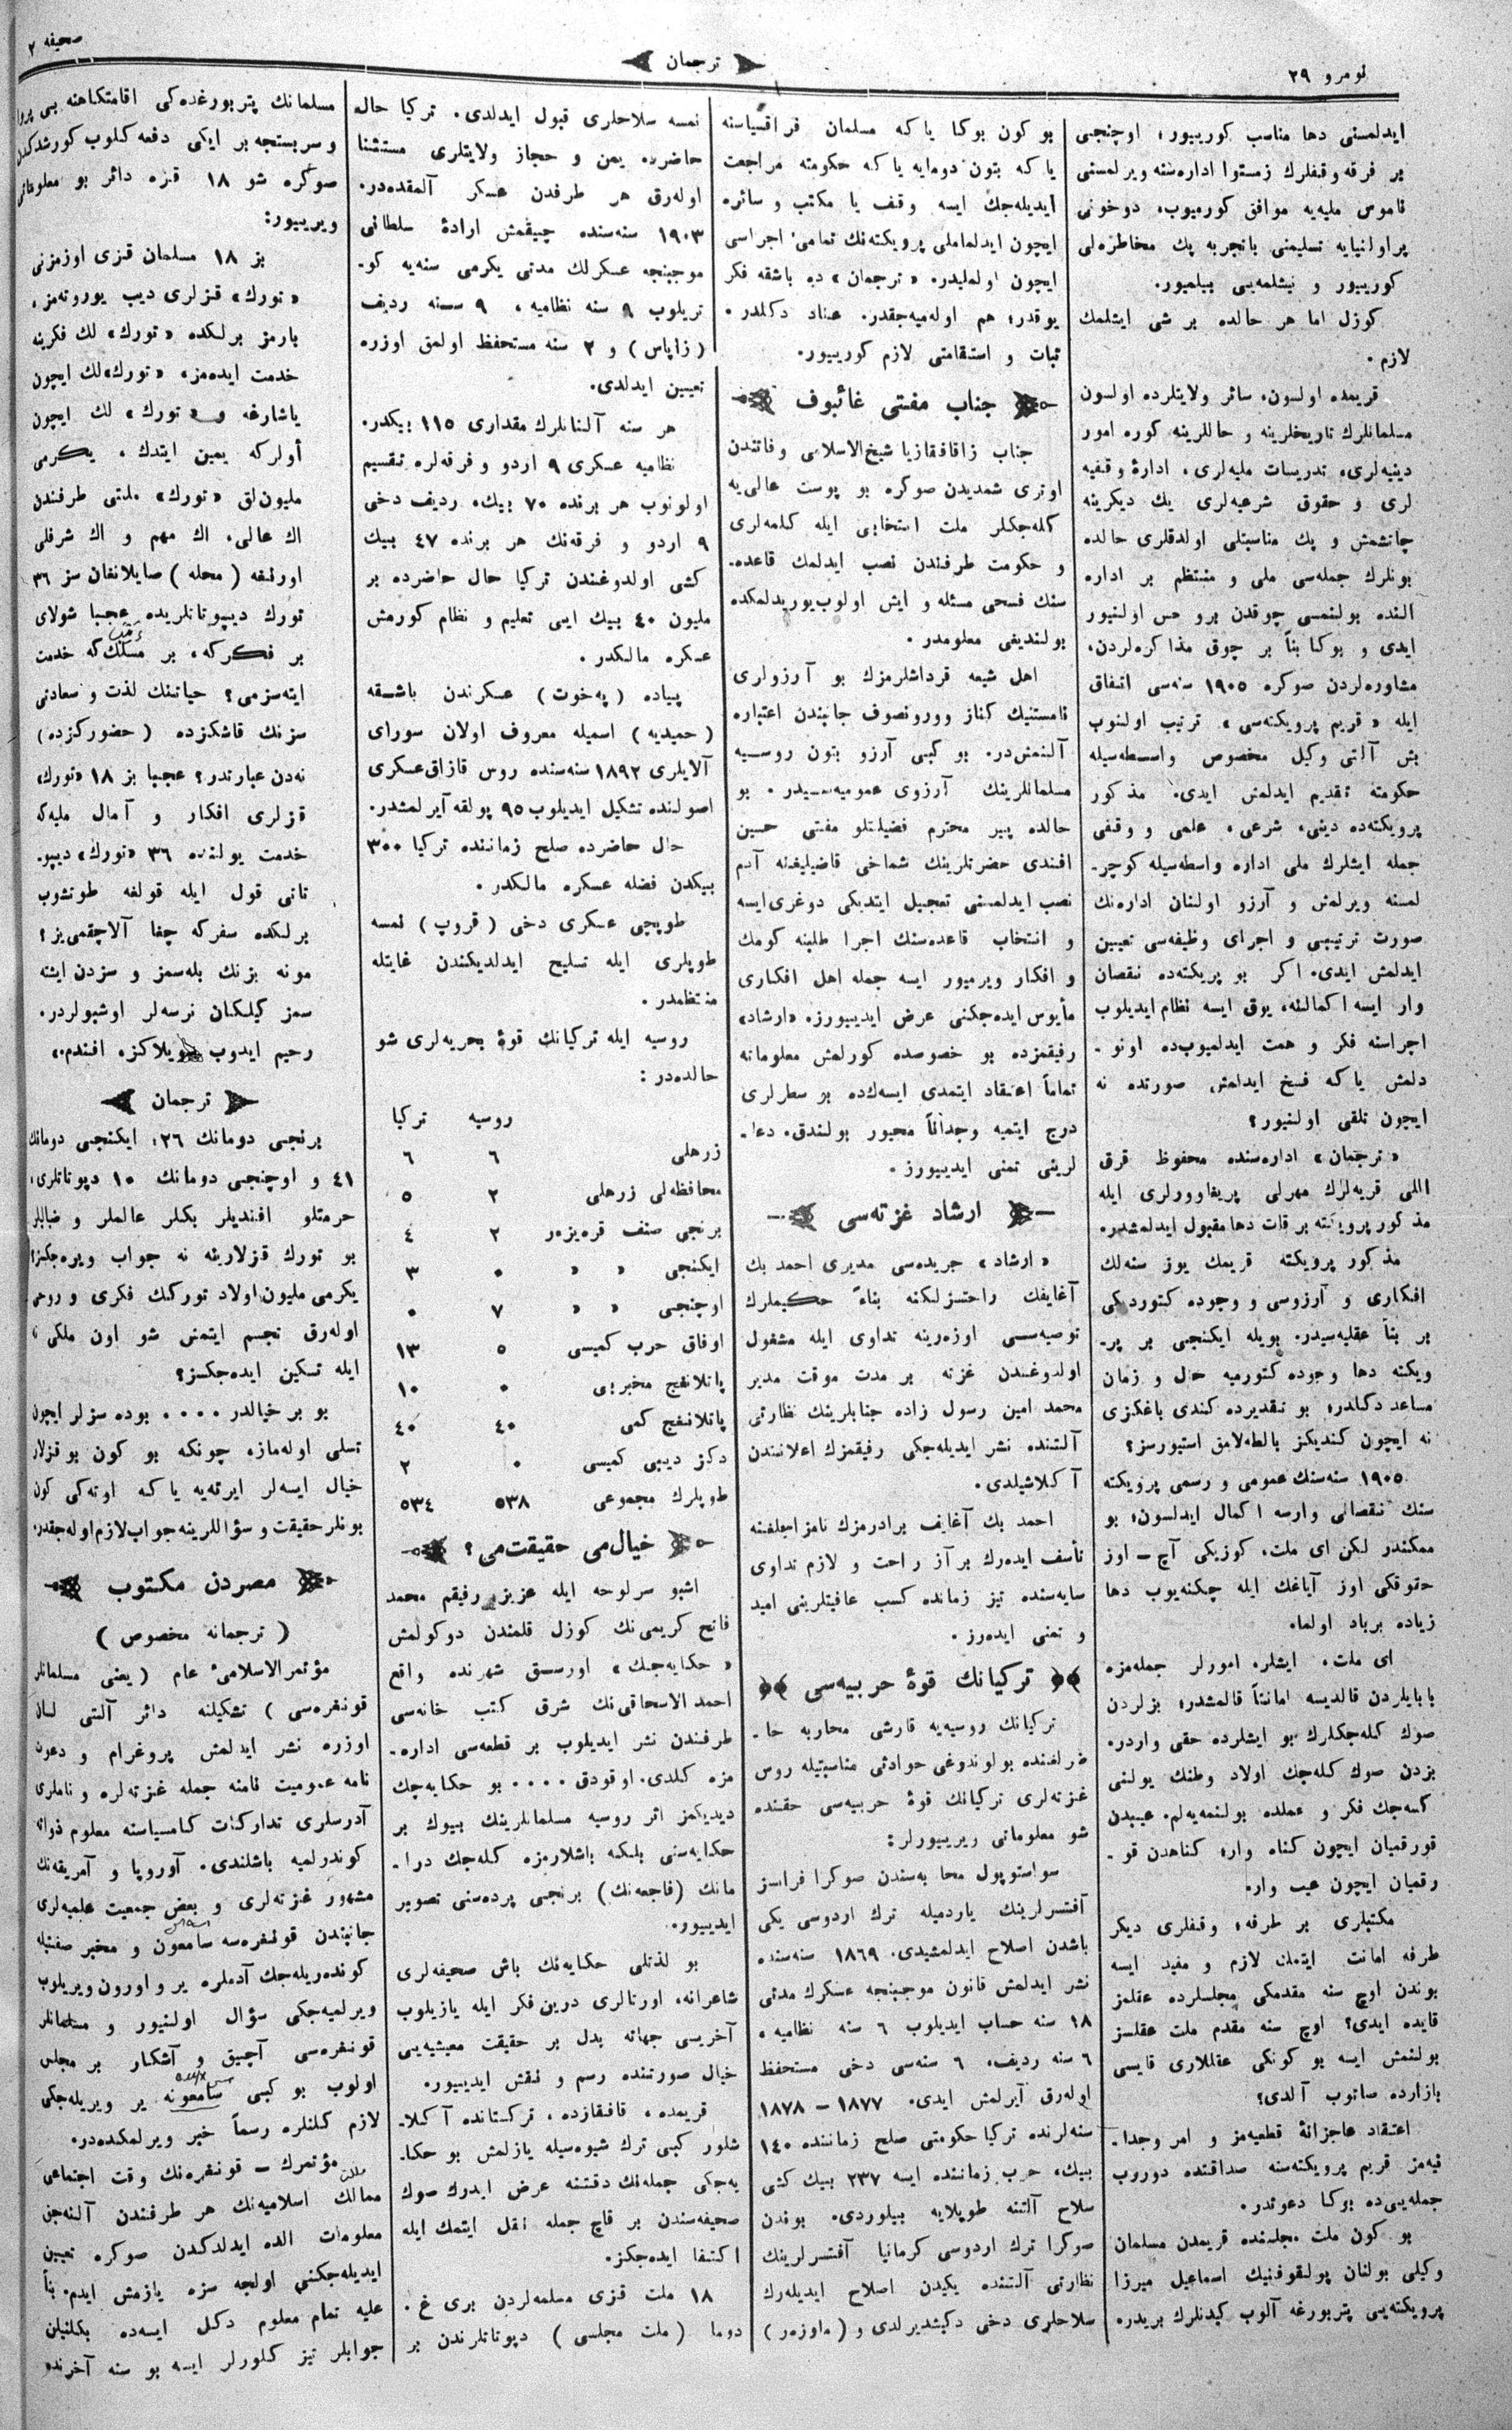 نومرو ٢٩
ترجمان
صحیفه ٢
ایدلمسنی دها مناسب کورییور؛ اوچنجی
بر فرقه وقفلرك زمستوا اداره‌سنه ویرلمسنی
ناموس ملیه‌یه موافق کورمیوب، دوخونی
پراولنیایه تسلیمنی باتجربه پك مخاطره‌لی
کورییور و نیشلمه‌یی بیلمیور.
کوزل اما هر حالده بر شی ایتلمك
لازم.
قریمده اولسون، سائر ولایتلرده اولسون
مسلمانلرك تاریخلرینه و حاللرینه کوره امور
دینیه‌لری، تدریسات ملیه‌لری، ادارهٔ وقفیه
لری و حقوق شرعیه‌لری یك دیکرینه
چاتشمش و پك مناسبتلی اولدقلری حالده
بونلرك جمله‌سی ملی و منتظم بر اداره
النده بولنمسی چوقدن برو حس اولنیور
ایدی و بوکا بناً بر چوق مذاکره‌لردن،
مشاوره‌لردن صوکره ١٩٠٥ سنه‌سی اتفاق
ایله «قریم پرویکته‌سی» ترتیب اولنوب
بش آلتی وکیل مخصوص واسطه‌سیله
حکومته تقدیم ایدلمش ایدی. مذکور
پرویکته‌ده دینی، شرعی، علمی و وقفی
جمله ایشلرك ملی اداره واسطه‌سیله کوچر-
لمسنه ویرلمش و آرزو اولنان اداره‌نك
صورت ترتیبی و اجرای وظیفه‌سی تعیین
ایدلمش ایدی. اکر بو پریکته‌ده نقصان
وار ایسه اکمالنه، یوق ایسه نظام ایدیلوب
اجراسنه فکر و همت ایدلمیوب‌ده اونو-
دلمش یاکه فسخ ایدلمش صورتده نه
ایچون تلقی اولنیور؟
«ترجمان» اداره‌سنده محفوظ قرق
اللی قریه‌لرك مهرلی پریغاوورلری ایله
مذکور پرویکته بر قات دها مقبول ایدلمشدر.
مذکور پرویکته قریمك یوز سنه‌لك
افکاری و آرزوسی و وجوده کتوردیکی
بر بنأ عقلیه‌سیدر. بویله ایکنجی بر پر-
ویکته دها وجوده کتورمیه حال و زمان
مساعد دکلدر؛ بو تقدیرده کندی باغکزی
نه ایچون کندیکز بالطه‌لامق استیورسز؟
١٩٠٥ سنه‌سنك عمومی و رسمی پرویکته
سنك نقصانی وارسه اکمال ایدلسون؛ بو
ممکندر لکن ای ملت، کوزیکی آچ – اوز
حقوقکی اوز آیاغك ایله چکنه‌یوب دها
زیاده برباد اولما.
ای ملت. ایشلر، امورلر جمله‌مزه
بابایلردن قالدیسه امانتاً قالمشدر؛ بزلردن
صوك کله‌جکلرك بو ایشلرده حقی واردر.
بزدن صوك کله‌جك اولاد وطنك یولنی
کسه‌جك فکر و عملده بولنمه‌یه‌لم. عیبدن
قورقمیان ایچون کناه وار؛ کناهدن قو-
رقمیان ایچون عیب وار.
مکتبلری بر طرفه؛ وقفلری دیکر
طرفه امانت ایتمك لازم و مفید ایسه
بوندن اوچ سنه مقدمکی مجلسلرده عقلمز
قایده ایدی؟ اوچ سنه مقدم ملت عقلسز
بولنمش ایسه بو کونکی عقللاری قایسی
بازارده صاتوب آلدی؟
اعتقاد عاجزانهٔ قطعیه‌مز و امر وجدا-
نیه‌مز قریم پرویکته‌سنه صداقتده دوروب
جمله‌یی‌ده بوکا دعوتدر.
بو کون ملت مجلسنده قریمدن مسلمان
وکیلی بولنان پولقوفنیك اسماعیل میرزا
پرویکته‌یی پتربورغه آلوب کیدنلرك بریدر.
بو کون بوکا یاکه مسلمان فراقسیاسنه
یاکه بتون دومایه یاکه حکومته مراجعت
ایدیله‌جك ایسه وقف یا مکتب و سائره
ایچون ایدلماملی پرویکته‌نك تمامیٔ اجراسی
ایچون اولملیدر. «ترجمان» ده باشقه فکر
یوقدر؛ هم اوله‌میه‌جقدر. عناد دکلدر.
ثبات و استقامتی لازم کورییور.
جناب مفتی غائبوف
جناب زاقافقازیا شیخ‌الاسلامی وفاتندن
اوتری شمدیدن صوکره بو پوست عالی‌یه
کله‌جکلر ملت انتخابی ایله کلمه‌لری
و حکومت طرفندن نصب ایدلمك قاعده-
سنك فسحی مسئله و ایش اولوب یوریدلمکده
بولندیغی معلومدر.
اهل شیعه قرداشلرمزك بو آرزولری
نامستنیك کناز وورونصوف جانبندن اعتباره
آلنمش‌در. بو کبی آرزو بتون روسیه
مسلمانلرینك آرزوی عمومیه‌سیدر. بو
حالده پیر محترم فضیلتلو مفتی حسین
افندی حضرتلرینك شماخی قاضیلیغنه آدم
نصب ایدلمسنی تعجیل ایتدیکی دوغری‌ایسه
و انتخاب قاعده‌سنك اجرا طلبنه کومك
و افکار ویرمیور ایسه جمله اهل افکاری
مأیوس ایده‌جکنی عرض ایدییورز. «ارشاد»
رفیقمزده بو خصوصده کورلمش معلوماته
تماماً اعتقاد ایتمدی ایسه‌ك‌ده بو سطرلری
درج ایتمیه وجداناً مجبور بولندق. دعا-
لرینی تمنی ایدییورز.
ارشاد غزته‌سی
«ارشاد» جریده‌سی مدیری احمد بك
آغایفك راحتسزلکنه بناءً حکیملرك
توصیه‌سی اوزه‌رینه تداوی ایله مشغول
اولدوغندن غزته بر مدت موقت مدیر
محمد امین رسول زاده جنابلرینك نظارتی
آلتنده نشر ایدیله‌جکی رفیقمزك اعلانندن
آکلاشیلدی.
احمد بك آغایف برادرمزك نامزاجلغنه
تأسف ایده‌رك بر آز راحت و لازم تداوی
سایه‌سنده تیز زمانده کسب عافیتلرینی امید
و تمنی ایده‌رز.
ترکیانك قوهٔ حربیه‌سی
ترکیانك روسیه‌یه قارشی محاربه حا-
ضرلغنده بولوندوغی حوادثی مناسبتیله روس
غزته‌لری ترکیانك قوهٔ حربیه‌سی حقنده
شو معلوماتی ویرییورلر:
سواستوپول محا به‌سندن صوکرا فرانسز
آفتسرلرینك یاردمیله ترك اردوسی یکی
باشدن اصلاح ایدلمشیدی. ١٨٦٩ سنه‌سنده
نشر ایدلمش قانون موجبنجه عسکرك مدتی
١٨ سنه حساب ایدیلوب ٦ سنه نظامیه،
٦ سنه ردیف، ٦ سنه‌سی دخی مستحفظ
اوله‌رق آیرلمش ایدی. ١٨٧٧ – ١٨٧٨
سنه‌لرنده ترکیا حکومتی صلح زماننده ١٤٠
بیك، حرب زماننده ایسه ٢٣٧ بیك کشی
سلاح آلتنه طوپلایه بیلوردی. بوندن
صوکرا ترك اردوسی کرمانیا آفتسرلرینك
نظارتی آلتنده یکیدن اصلاح ایدیله‌رك
سلاحلری دخی دکیشدیرلدی و (ماوزەر)
نمسه سلاحلری قبول ایدلدی. ترکیا حال
حاضرده یمن و حجاز ولایتلری مستشنا
اوله‌رق هر طرفدن عسکر آلمقده‌در.
١٩٠٣ سنه‌سنده چیقمش ارادهٔ سلطانی
موجبنجه عسکرلك مدتی یکرمی سنه‌یه کو-
تریلوب ٩ سنه نظامیه، ٩ سنه ردیف
(زاپاس) و ٢ سنه مستحفظ اولمق اوزره
تعیین ایدلدی.
هر سنه آلنانلرك مقداری ١١٥ بیکدر.
نظامیه عسکری ٩ اردو و فرقه‌لره تقسیم
اولونوب هر برنده ٧٠ بیك، ردیف دخی
٩ اردو و فرقه‌نك هر برنده ٤٧ بیك
کشی اولدوغندن ترکیا حال حاضرده بر
ملیون ٤٠ بیك ایبی تعلیم و نظام کورمش
عسکره مالکدر.
پیاده (پەخوت) عسکرندن باشقه
(حمیدیه) اسمیله معروف اولان سورای
آلایلری ١٨٩٢ سنه‌سنده روس قازاق عسکری
اصولنده تشکیل ایدیلوب ٩٥ پولقه آیرلمشدر.
حال حاضرده صلح زماننده ترکیا ٣٠٠
بیکدن فضله عسکره مالکدر.
طوپچی عسکری دخی (قروپ) نمسه
طوپلری ایله تسلیح ایدلدیکندن غایتله
منتظمدر.
روسیه ایله ترکیانك قوهٔ بحریه‌لری شو
حالده‌در:
روسیه ترکیا
زرهلی ٦ ٦
محافظه‌لی زرهلی ٢ ٥
برنجی صنف قرەیزەر ٢ ٤
ایکنجی « « ٠ ٣
اوچنجی « « ٧ ٠
اوفاق حرب کمیسی ٥ ١٣
پاتلانغج مخبربی ٠ ١٠
پاتلانغج کمی ٤٠ ٤٠
دکز دیبی کمیسی ٠ ٢
طوپلرك مجموعی ٥٣٨ ٥٣٤
خیال‌می حقیقت‌می؟
اشبو سرلوحه ایله عزیز رفیقم محمد
فاتح کریمی‌نك کوزل قلمندن دوکولمش
«حکایه‌جك» اورسق شهرنده واقع
احمد الاسحاقی‌نك شرق کتب خانه‌سی
طرفندن نشر ایدیلوب بر قطعه‌سی اداره-
مزه کلدی. اوقودق .... بو حکایه‌جك
دیدیکمز اثر روسیه مسلمانلرینك بیوك بر
حکایه‌سنی بلکه باشلارمزه کله‌جك درا-
مانك (فاجعه‌نك) برنجی پرده‌سنی تصویر
ایدییور.
بو لذتلی حکایه‌نك باش صحیفه‌لری
شاعرانه، اورتالری درین فکر ایله یازیلوب
آخریسی جهانه بدل بر حقیقت معیشیه‌یی
خیال صورتنده رسم و نقش ایدییور.
قریمده، قافقازده، ترکستانده آکلا-
شلور کبی ترك شیوه‌سیله یازلمش بو حکا-
یه‌جکی جمله‌نك دقتنه عرض ایدرك صوك
صحیفه‌سندن بر قاچ جمله نقل ایتمك ایله
اکتفا ایده‌جکز.
١٨ ملت قزی مسلمه‌لردن بری غ.
دوما (ملت مجلسی) دپوتاتلرندن بر
مسلمانك پتربورغده‌کی اقامتکاهنه بی پروا
و سربستجه بر ایکی دفعه کلوب کورشدکدن
صوکره شو ١٨ قزه دائر بو معلوماتی
ویرییور:
بز ١٨ مسلمان قزی اوزمزنی
«تورك» قزلری دیب یوروته‌مز،
بارمز برلکده «تورك» لك فکرینه
خدمت ایده‌مز، «تورك»لك ایچون
یاشارغه و «تورك» لك ایچون
أولرکه یمین ایتدك، یکرمی
ملیون‌لق «تورك» ملتی طرفندن
اك عالی، اك مهم و اك شرفلی
اورنغه (محله) صایلانغان سز ٣٦
تورك دیپوتاتلریده عجبا شولای
بر فکرکه، بر مسلك‌که خدمت
ایته‌سزمی؟ حیاتنك لذت و سعادتی
سزنك قاشکزده (حضورکزده)
نه‌دن عبارتدر؟ عجبا بز ١٨ «تورك»
قزلری افکار و آمال ملیه‌که
خدمت یولنده ٣٦ «تورك» دیپو-
تاتی قول ایله قولغه طوتشوب
برلکده سفرکه چغا آلاچقمی‌یز؟
مونه بزنك بله‌سمز و سزدن ایشته
سمز کیلکان نرسه‌لر اوشبولردر.
رحیم ایدوب سویلاکز، افندم.»
ترجمان
برنجی دومانك ٢٦؛ ایکنجی دومانك
٤١ و اوچنجی دومانك ١٠ دپوتاتلری،
حرمتلو افندیلر بکلر عالملر و ضیالیلر
بو تورك قزلارینه نه جواب ویره‌جکز؟
یکرمی ملیون اولاد تورکنك فکری و روحی
اوله‌رق تجسم ایتمش شو اون ملکی نه
ایله تسکین ایده‌جکسز؟
بو بر خیالدر .... بوده سزلر ایچون
تسلی اوله‌ماز، چونکه بو کون بو قزلار
خیال ایسه‌لر ایرته‌یه یاکه اوته‌کی کون
بونلر حقیقت و سؤاللرینه جواب لازم اوله‌جقدر.
مصردن مکتوب
(ترجمانه مخصوص)
مؤتمرالاسلامیٔ عام (یعنی مسلمانلر
قونفره‌سی) تشکیلنه دائر آلتی لسان
اوزره نشر ایدلمش پروغرام و دعوت
نامه عمومیت نامنه جمله غزته‌لره و ناملری
آدرسلری تدارکات کامسیاسنه معلوم ذواته
کوندرلمیه باشلندی. آوروپا و آمریقه‌نك
مشهور غزته‌لری و بعض جمعیت علمیه‌لری
جانبندن قونفره‌سه سامعون و مخبر صفتیله
کونده‌ریله‌جك آدملره یر و اورون ویریلوب
ویرلمیه‌جکی سؤال اولنیور و مسلمانلر
قونفره‌سی آچیق و آشکار بر مجلس
اولوب بو کبی سامعونه یر ویریله‌جکی
لازم کلنلره رسماً خبر ویرلمکده‌در.
مؤتمرك – قونفره‌نك وقت اجتماعی
ممالك اسلامیه‌نك هر طرفندن آلنه‌جق
معلومات الده ایدلدکدن صوکره تعیین
ایدیله‌جکنی اولجه سزه یازمش ایدم. بنأ
علیه تمام معلوم دکل ایسه‌ده بکلنیلن
جوابلر تیز کلورلر ایسه بو سنه آخرنده